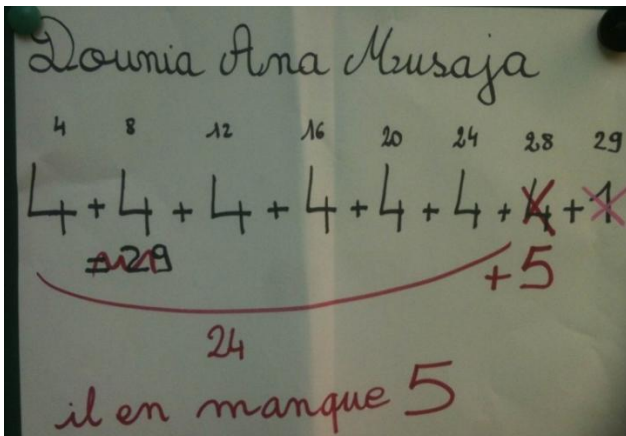 Dounia Ana Musaja
4 8 12 16 20 24 28 29
4 + 4 + 4 + 4 + 4 + 4 + 4 + 1
= 29
+ 5
24
il en manque 5